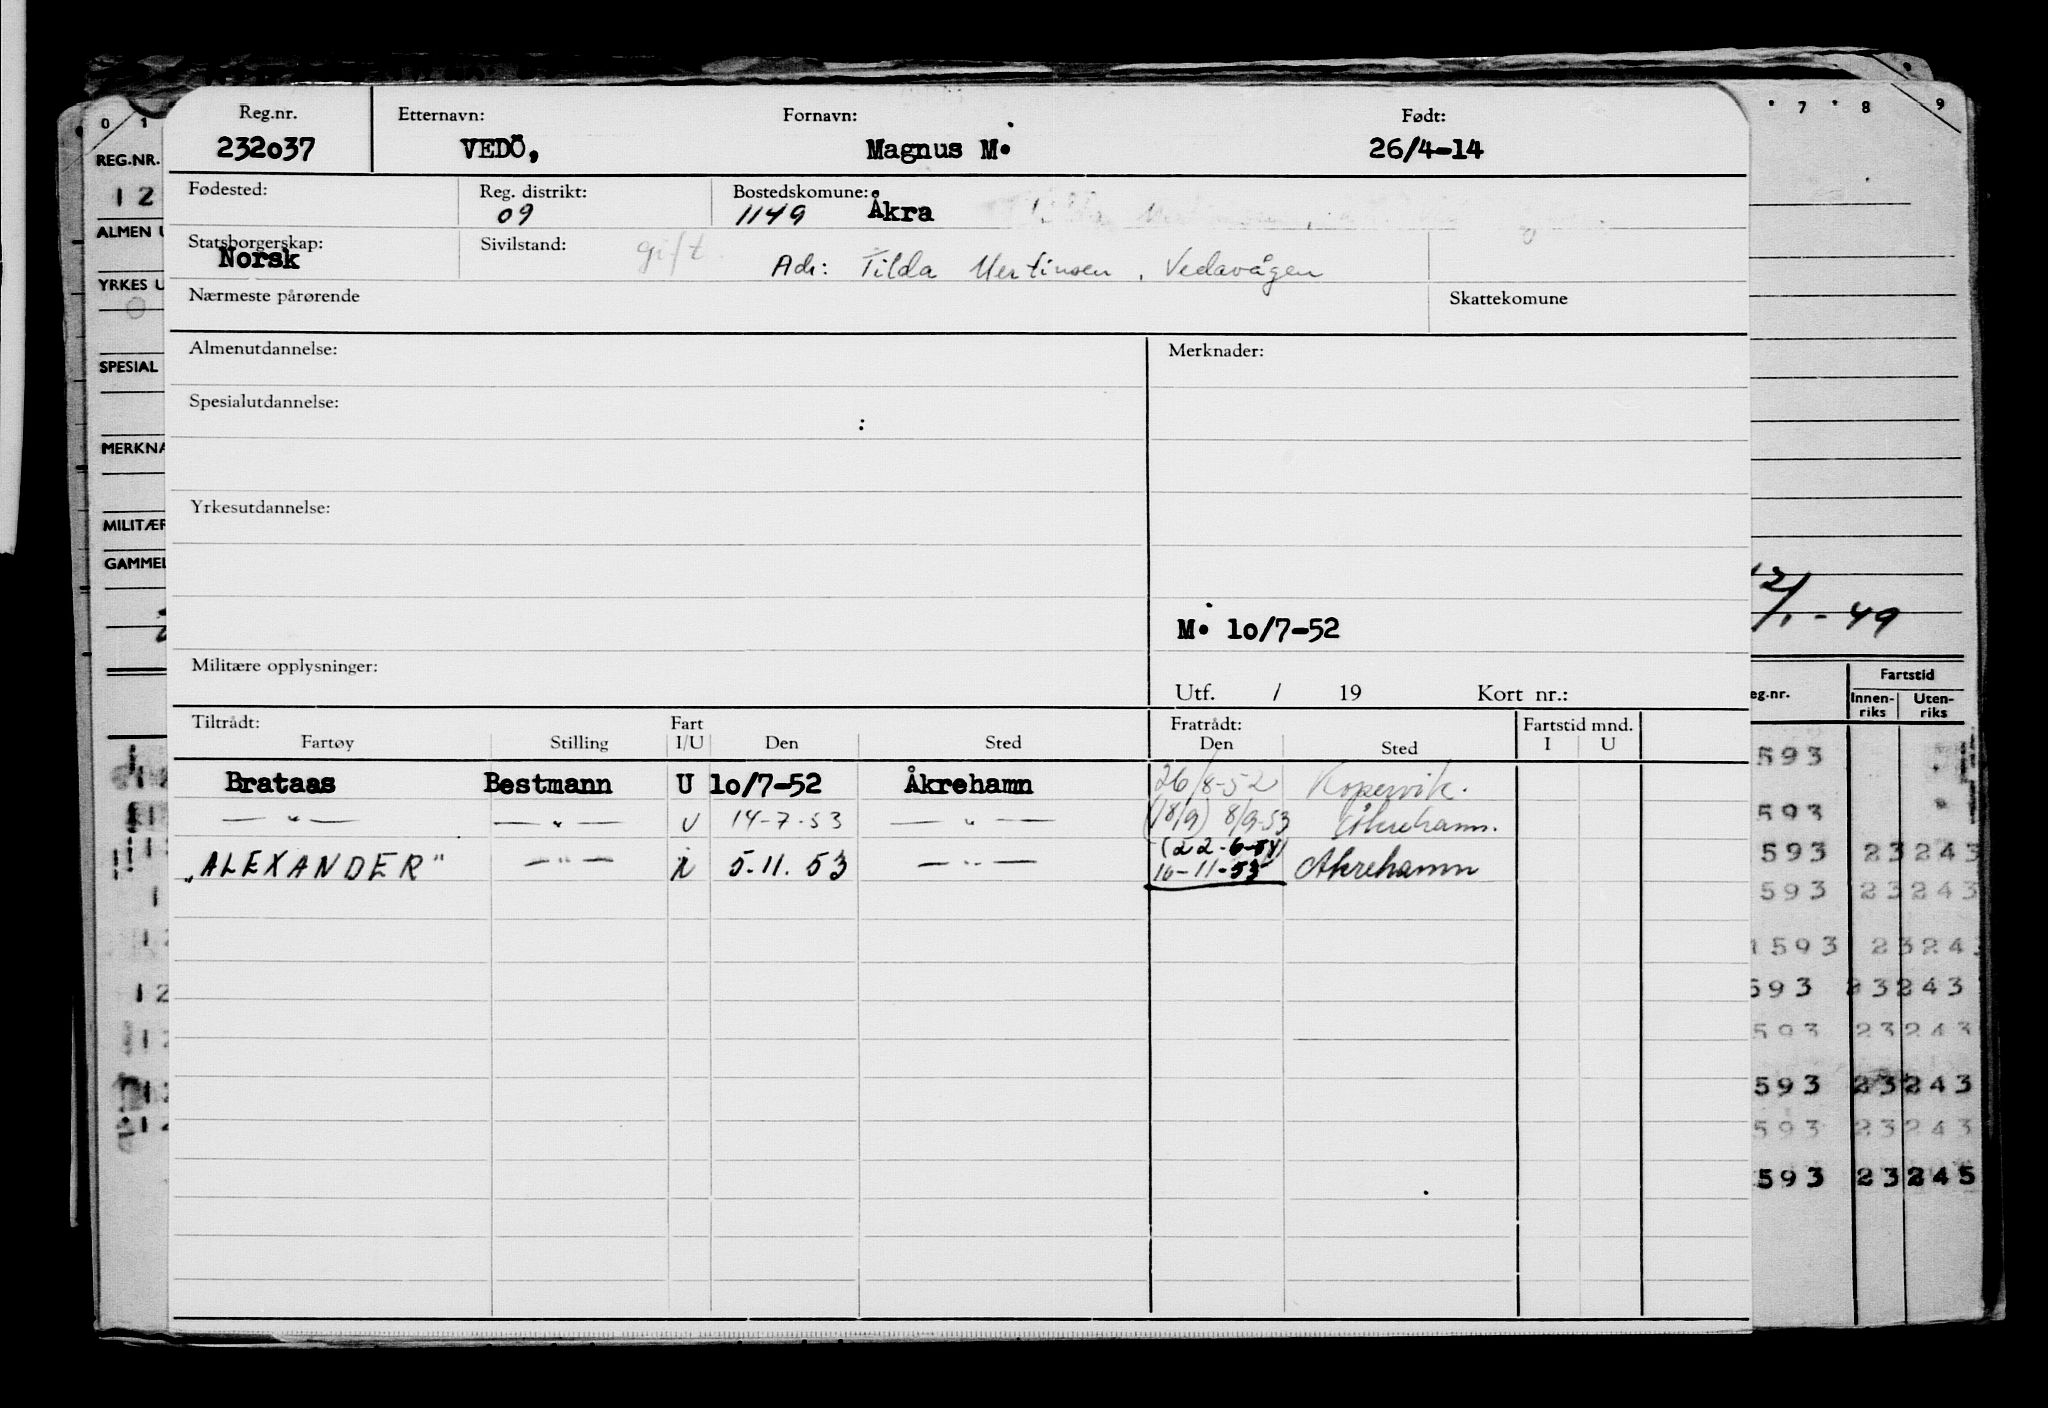 0 1 7 8 9
Reg.nr. Etternavn: Fornavn: Født:
232037 VEDÖ, Magnus M. 26/4-14
REG.NR.
12
Fødested: Reg. distrikt: Bostedskomune:
09 1149 Åkra
ALMEN U
Statsborgerskap: Sivilstand: gift
Norsk Adr: Tilda Mertinsen, Vedavågen
YRKES U
Nærmeste pårørende Skattekomune
Almenutdannelse: Merknader:
SPESIAL
Spesialutdannelse:
MERKNA
Yrkesutdannelse:
MILITÆR
GAMMEL
12/1-49
M. 10/7-52
Militære opplysninger:
Utf. / 19 Kort nr.:
eg.nr. Fartstid
Innen-riks Uten-riks
Tiltrådt: Fart Fratrådt: Fartstid mnd.
Fartøy Stilling I/U Den Sted Den Sted I U
Brataas Bestmann U 10/7-52 Åkrehamn 26/8-52 Kopervik.
—"— —"— U 14-7-53 —"— (18/9) 8/9-53 Åkrehamn.
(22-6-54)
"ALEXANDER" —"— 5.11.53 —"— 10-11-53 Åkrehamn
593
593
593 23 243
593 23 243
1593 23 243
593 23 243
593 23 243
593 23 243
593 23 243
593 23 245